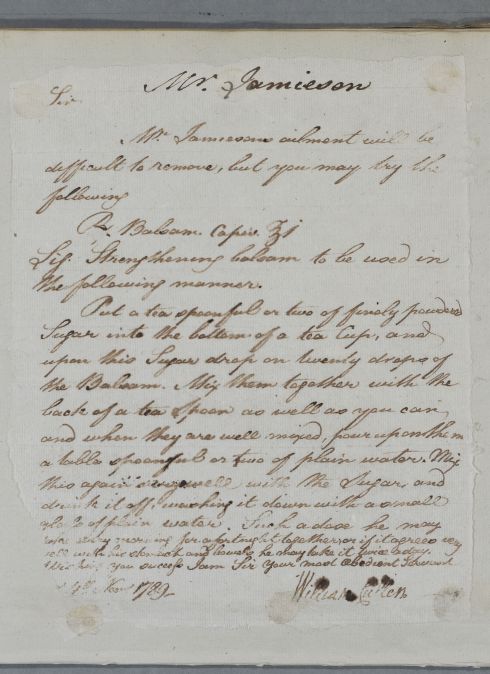 Mr. Jamieson
Sir.
Mr. Jamiesons ailment will be
difficult to remove, but you may try the
following
R. Balsam. Capiv. ℥i
Sig. Strengthening balsam to be used in
the following manner.
Put a tea spoonful or two of finely powdered
Sugar into the bottom of a tea Cup, and
upon this Sugar drop on twenty drops of
the Balsam. Mix them together with the
back of a tea Spoon as well as you can,
and when they are well mixed, pour upon them
a table spoonful or two of plain water. Mix
this again very well with the Sugar, and
drink it off, washing it down with a small
of plain water. Such a dose he may
take every morning for a fortnight together, or if it agrees very
well with his stomach and bowels he may take it twice a day.
Wishing you success I am Sir Your most Obedient Servant
Novr 1789
William Cullen